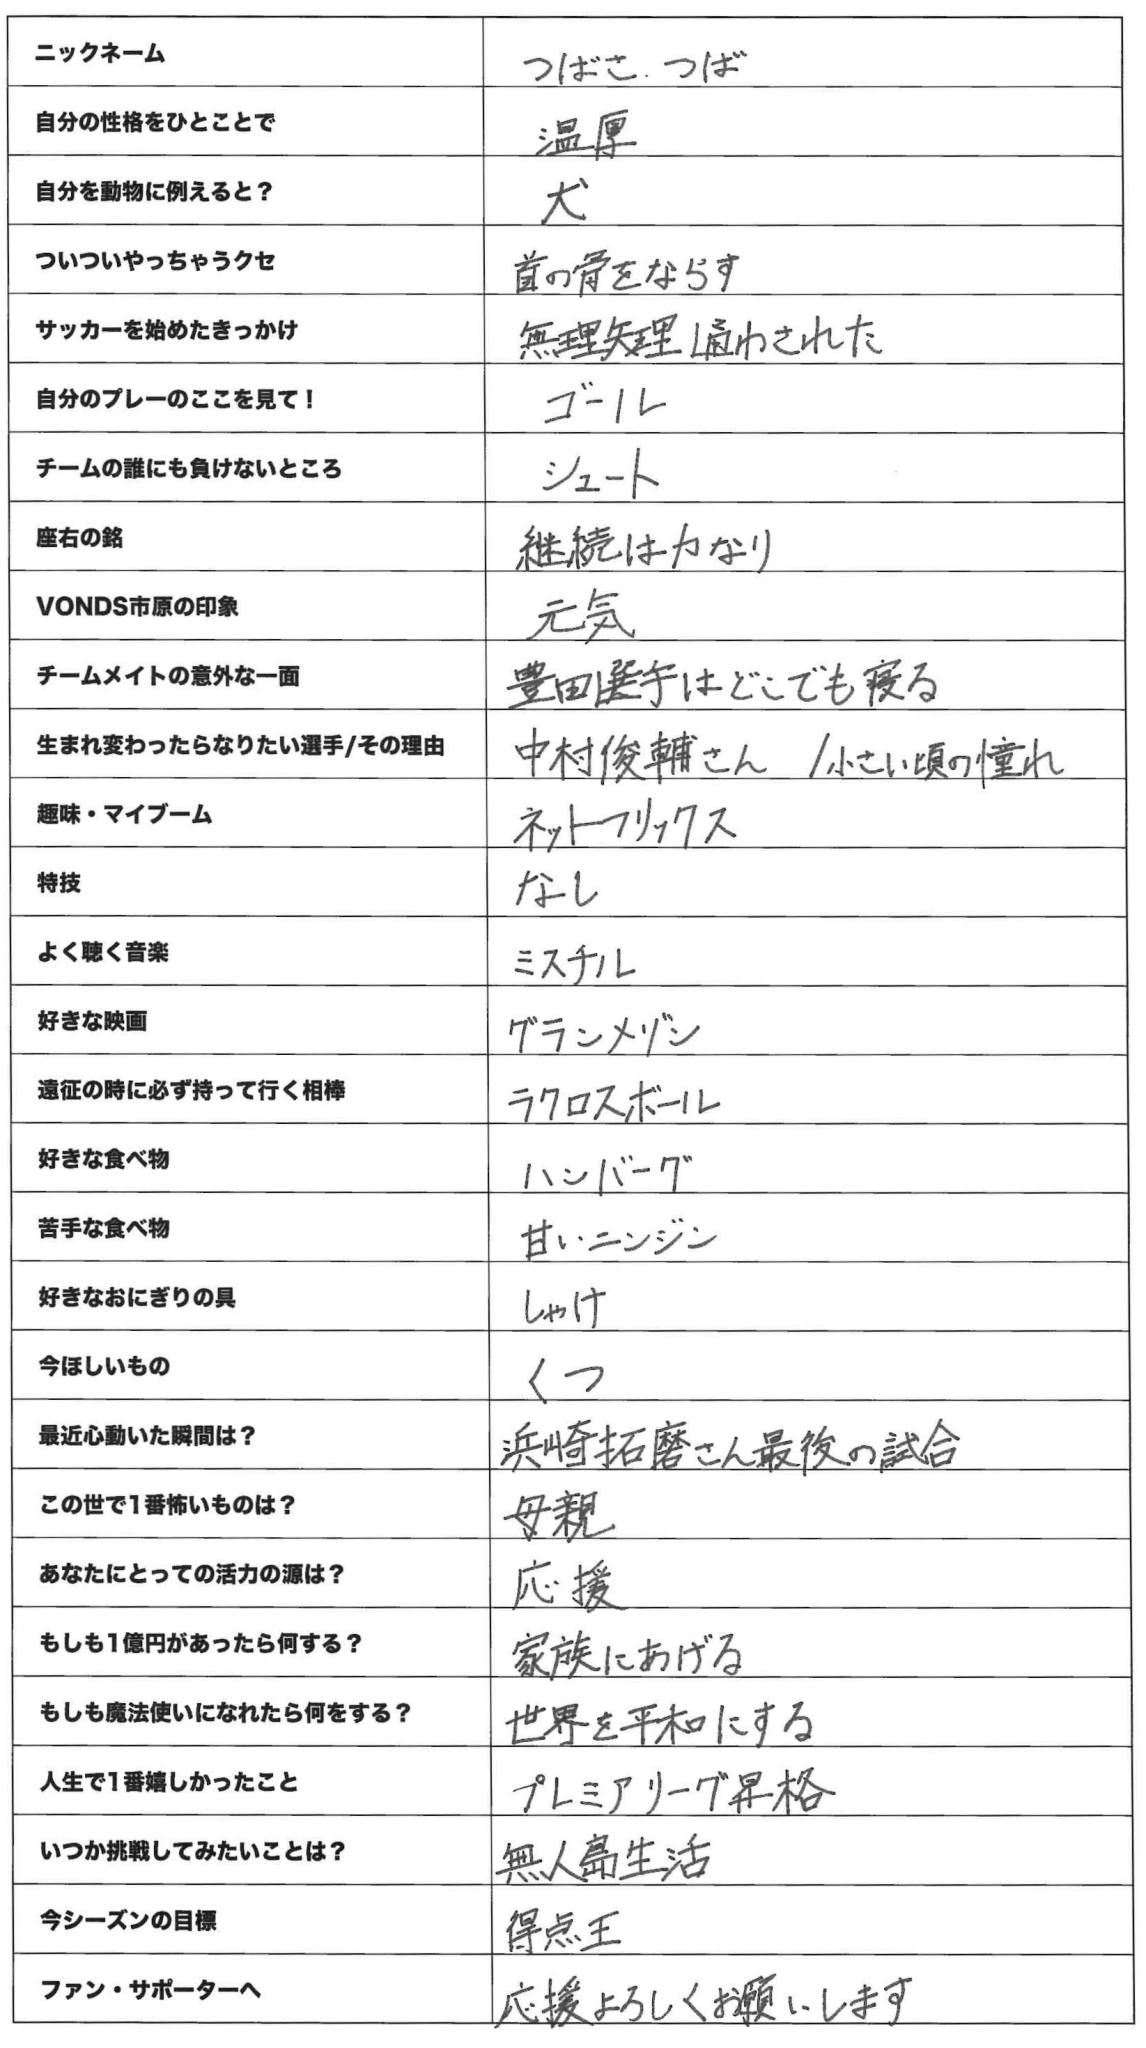 ニックネーム つばさ.つば
自分の性格をひとことで 温厚
自分を動物に例えると？ 犬
ついついやっちゃうクセ 首の骨をならす
サッカーを始めたきっかけ 無理矢理通わされた
自分のプレーのここを見て！ ゴール
チームの誰にも負けないところ シュート
座右の銘 継続は力なり
VONDS市原の印象 元気
チームメイトの意外な一面 豊田選手はどこでも寝る
生まれ変わったらなりたい選手/その理由 中村俊輔さん /小さい頃の憧れ
趣味・マイブーム ネットフリックス
特技 なし
よく聴く音楽 ミスチル
好きな映画 グランメゾン
遠征の時に必ず持って行く相棒 ラクロスボール
好きな食べ物 ハンバーグ
苦手な食べ物 甘いニンジン
好きなおにぎりの具 しゃけ
今ほしいもの くつ
最近心動いた瞬間は？ 浜崎拓磨さん最後の試合
この世で1番怖いものは？ 母親
あなたにとっての活力の源は？ 応援
もしも1億円があったら何する？ 家族にあげる
もしも魔法使いになれたら何をする？ 世界を平和にする
人生で1番嬉しかったこと プレミアリーグ昇格
いつか挑戦してみたいことは？ 無人島生活
今シーズンの目標 得点王
ファン・サポーターへ 応援よろしくお願いします